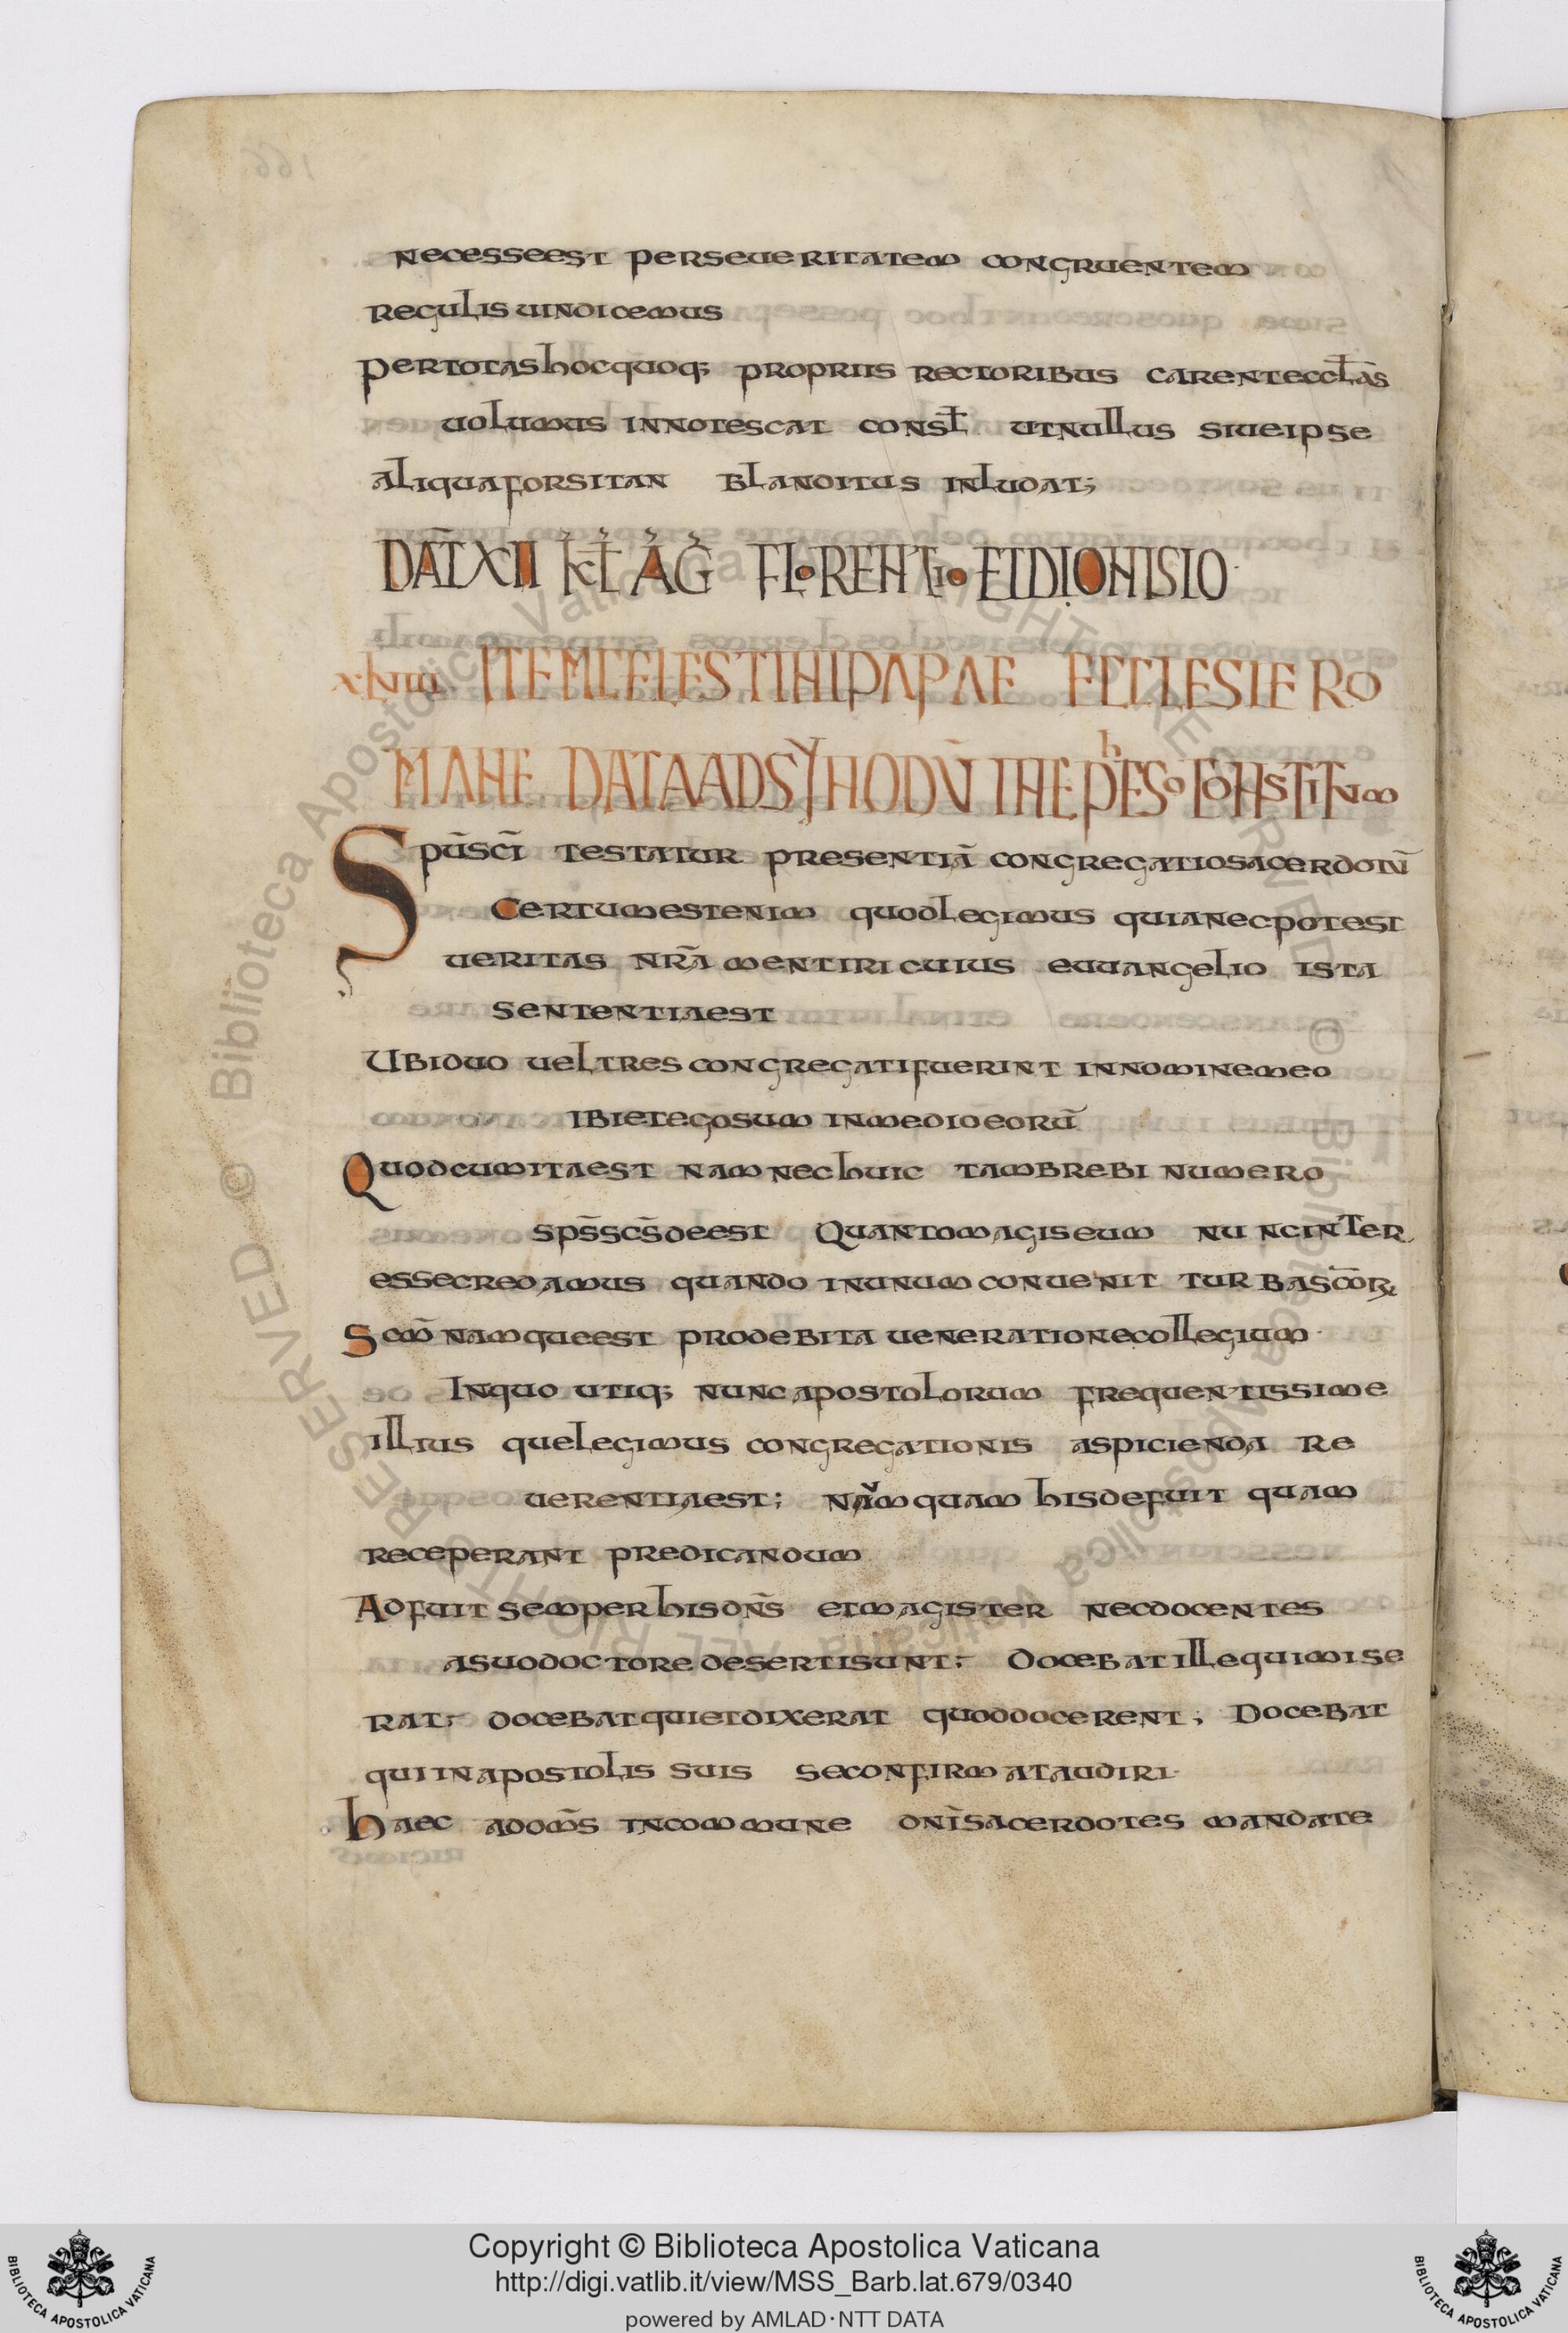 necesseest perseueritatem congruentem
regulis uindicemus
pertotas hocquoq; propriis rectoribus carentecclas
uolumus innotescat const utnullus siueipse
aliquaforsitan blanditus inludat;
DAT XII KL AG FLORENTIO ETDIONISIO
xluiii ITEMCELESTINIPAPAE ECCLESIE RO
MANE DATAADSYNHODU INEPhESO CONSTITutum
Spusci testatur presentia congregatiosacerdotu
Certumestenim quodlegimus quianecpotest
ueritas nra mentiri cuius euuangelio ista
sententiaest
Ubiduo ueltres congregatifuerint innominemeo
ibietegosum inmedioeoru
Quodcumitaest nam nechuic tambrebi numero
spsscsdeest Quantomagiseum nuncinter
essecredamus quando inunumconuenit turbascor
Scm namqueest prodebita uenerationecollegium
Inquo utiq; nuncapostolorum frequentissime
illius quelegimus congregationis aspicienda re
uerentiaest; Namquam hisdefuit quam
receperant predicandum
Adfuit semperhisdns etmagister necdocentes
asuodoctore desertisunt; Docebatillequimise
rat; docebatquietdixerat quoddocerent; Docebat
quiinapostolis suis seconfirmataudiri
haec adoms incommune dnisacerdotes mandate
Copyright © Biblioteca Apostolica Vaticana
http://digi.vatlib.it/view/MSS_Barb.lat.679/0340
powered by AMLAD·NTT DATA